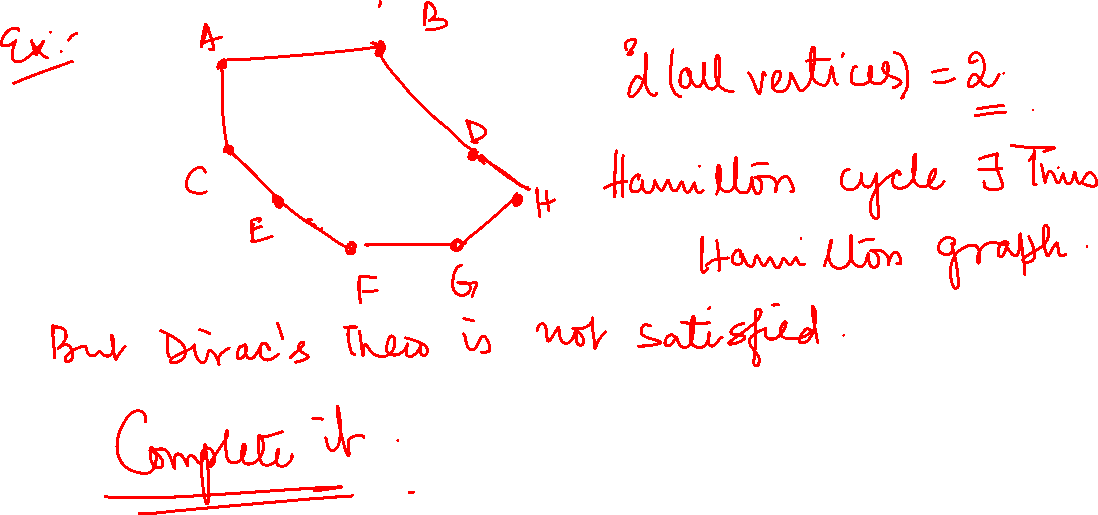 Ex:-
A B
d(all vertices) = 2.
D
C H
Hamilton cycle ∃ Thus
E
Hamilton graph.
F G
But Dirac's Theo is not satisfied.
Complete it.